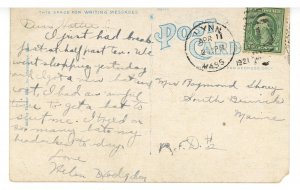 THIS SPACE FOR WRITING MESSAGES
POST CARD
LYNN
APR 11
2 PM
1921
MASS.
Dear Hattie:-
I just had break
fast at half past ten. We
went shopping yesterday
and I got a new hat
I had an awful
time to get a hat to
suit me. I tried on
so many hats my
head ached to-day.
Love
Helen Hodgdon
Mrs Raymond Shorey
South Berwick
Maine
R.F.D. #2